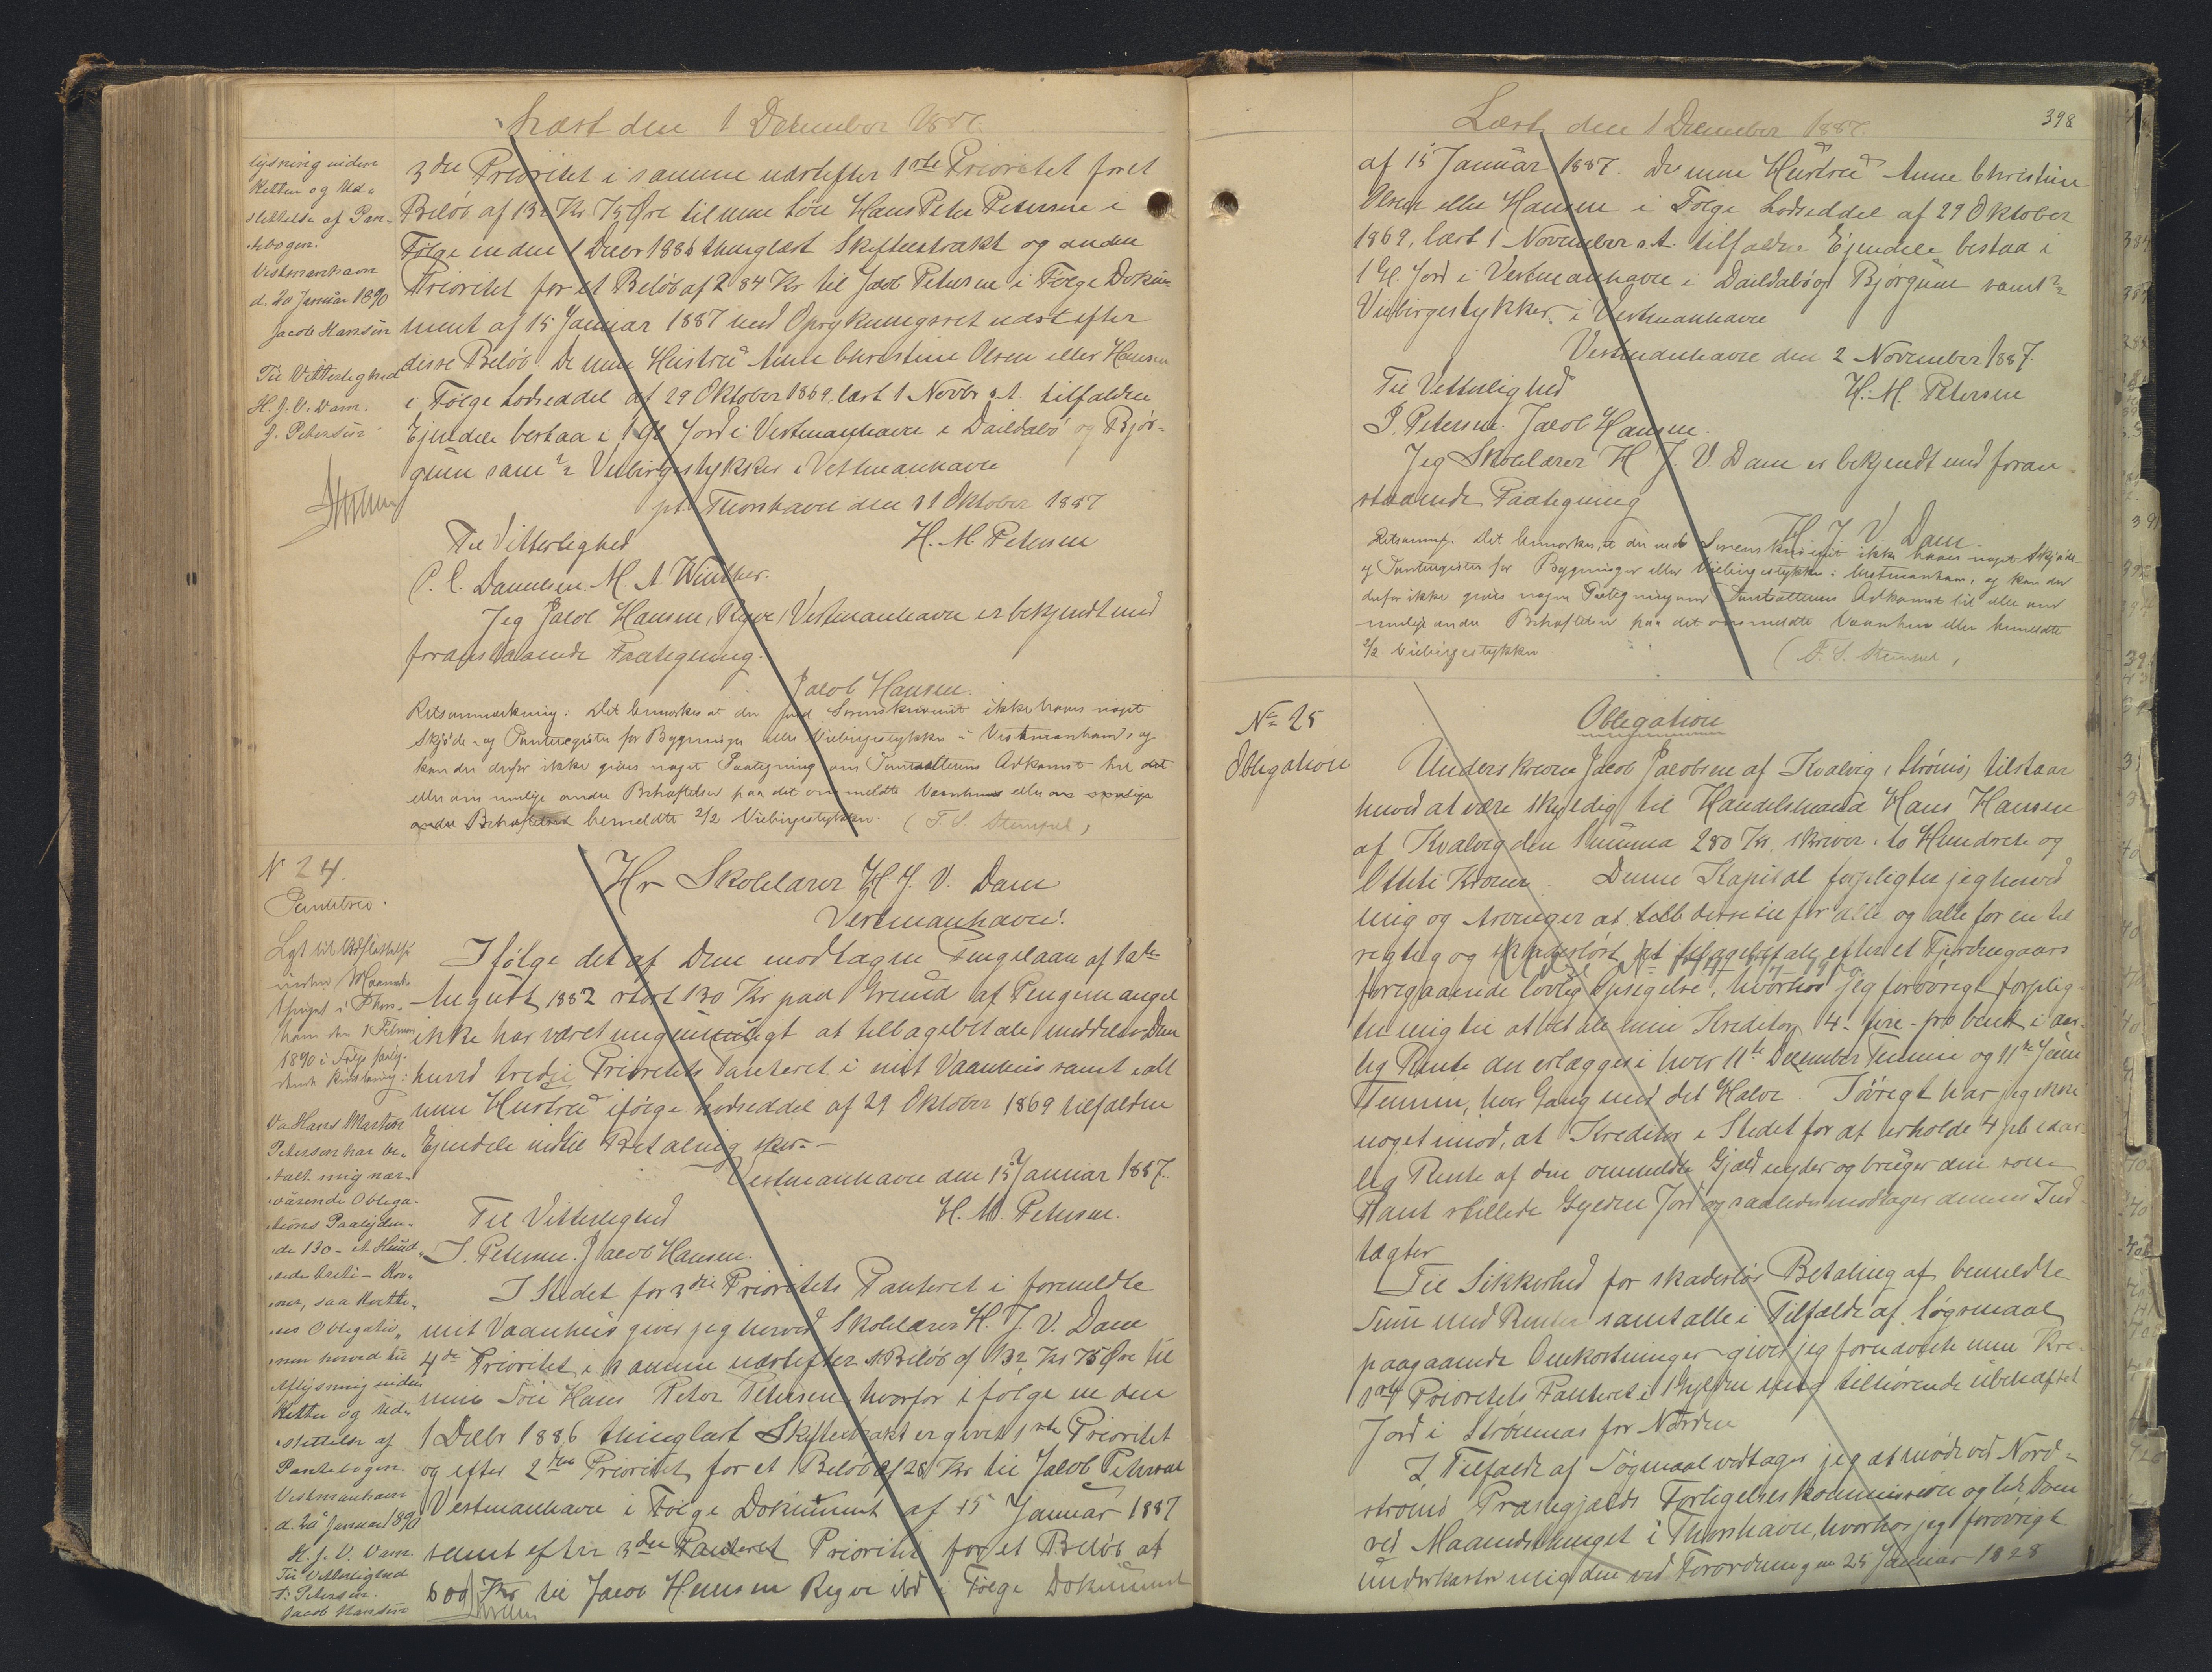 Læst den 1 December 1887.
lysning uden
Retten og Ud-
slettelse af Pan-
tebogen.
Vestmanhavn
d. 20 Januar 1890
Jacob Hansen
Til Vitterlighed
H. J. V. Dam.
J. Petersen
3die Prioritet i samme næstefter 1ste Prioritet for et
Beløb af 132 Kr 75 Øre til min Søn Hans Peter Petersen i
Følge en den 1 Decbr 1886 thinglæst Skifteextrakt og anden
Prioritet for et Beløb af 284 Kr til Jacob Petersen i Følge Doku-
ment af 15 Januar 1887 med Oprykningsret næst efter
disse Beløb. De min Hustru Anne Christine Olsen eller Hansen
i Følge Lodseddel af 29 Oktober 1869, læst 1 Novbr s.A. tilfaldne
Ejendele bestaa i 1 Gl Jord i Vestmanhavn i Daildabø og Bjør-
gum samt 2/2 Viebirgestykker i Vestmanhavn
pt. Thorshavn den 31 Oktober 1887
Til Vitterlighed H. M. Petersen
P. C. Danielsen. M. A. Winther.
Jeg Jacob Hansen, Rygve i Vestmanhavn er bekjendt med
foranstaaende Paategning.
Jacob Hansen.
Retsanmærkning: Det bemærkes at der ved Sorenskriveriet ikke haves noget
Skjøde- og Panteregister for Bygninger eller Viebirgestykker i Vestmanhavn, og
kan der derfor ikke gives nogen Paategning om Pantsætterens Adkomst til det
eller om mulige andre Behæftelser paa det ommeldte Vaanhus eller om mulige
andre Behæftelser bemeldte 2/2 Viebirgestykker. (T. S. Stempel)
N 24.
Pantebrev.
Hr Skolelærer H. J. V. Dam
Vestmanhavn!
Lyst til Udslettelse
inden Maaneds-
thinget i Thors-
havn den 1 Februar
1890 i Følge saaly-
dende Kvittering:
Da Hans Martin
Petersen har be-
talt mig nær-
værende Obliga-
tions Paalyden-
de 130 - et Hund-
rede tredive - Kro-
ner, saa kvitte-
res Obligatio-
nen herved til
Aflysning uden
Retten og Ud-
slettelse af
Pantebogen.
Vestmanhavn
d. 20 Januar 1890
H. J. V. Dam.
Til Vitterlighed
J. Petersen.
Jacob Hansen
Ifølge det af Dem modtagne Pengelaan af
August 1882 stort 130 Kr paa Grund af Pengemangel
ikke har været mig muligt at tilbagebetale meddeler Dem
herved tredje Prioritets Panteret i mit Vaanhus samt i alt
min Hustru ifølge Lodseddel af 29 Oktober 1869 tilfaldne
Ejendele indtil Betaling sker.-
Vestmanhavn den 15 Januar 1887.
Til Vitterlighed H. M. Petersen.
J. Petersen. Jacob Hansen.
I Stedet for 3die Prioritets Panteret i formeldte
mit Vaanhus giver jeg herved Skolelærer H. J. V. Dam
4de Prioritet i samme næstefter et Beløb af 132 Kr 75 Øre til
min Søn Hans Peter Petersen, hvorfor i følge en den
1 Decbr 1886 thinglæst Skifteextrakt er givet 1ste Prioritet
og efter 2den Prioritet for et Beløb af 28 Kr til Jacob Petersen
Vestmanhavn i Følge Dokument af 15 Januar 1887
samt efter 3die Panteret Prioritet for et Beløb af
600 Kr til Jacob Hansen Rygve ibd i Følge Dokument
Læst den 1 December 1887.
398
af 15 Januar 1887. De min Hustru Anne Christine
Olsen eller Hansen i Følge Lodseddel af 29 Oktober
1869, læst 1 November s.A. tilfaldne Ejendele bestaa i
1 Gl. Jord i Vestmanhavn i Daildabø og Bjørgum samt 2/2
Viebirgestykker i Vestmanhavn
Vestmanhavn den 2 November 1887.
Til Vitterlighed H. M. Petersen
J. Petersen. Jacob Hansen.
Jeg Skolelærer H. J. V. Dam er bekjendt med foran
staaende Paategning
H. J. V. Dam.
Retsanm. Det bemærkes, at der ved Sorenskriveriet ikke haves noget Skjøde-
og Panteregister for Bygninger eller Viebirgestykker i Vestmanhavn, og kan der
derfor ikke gives nogen Paategning om Pantsætterens Adkomst til eller om
mulige andre Behæftelser paa det ommeldte Vaanhus eller bemeldte
2/2 Viebirgestykker. (T. S. Stempel)
No 25
Obligation
Obligation
Underskrevne Jacob Jacobsen af Kvalvig, Strømø, tilstaar
herved at være skyldig til Handelsmand Hans Hansen
af Kvalvig den Summa 280 Kr, skriver: to Hundrede og
Otteti Kroner. Denne Kapital forpligter jeg herved
mig og Arvinger at tilb disse in for alle og alle for en til
rigtig og skadesløst at tilbagebetale efter et Fjerdingaars
foregaaende lovlig Opsigelse, hvorhos jeg forøvrigt forplig-
ter mig til at betale min Kreditor 4 - fire - pro Cent i aar-
lig Rente der erlægges i hver 11te December Termin og 11te Juni
Termin, hver Gang med det Halve. Iøvrigt har jeg ikke
noget imod, at Kreditor i Stedet for at erholde 4 pCt i aar-
lig Rente af den ommeldte Gjæld nyder og bruger den som
Pant stillede Gylden Jord og saaledes modtager dennes Ind-
tægter
Til Sikkerhed for skadesløs Betaling af bemeldte
Sum med Renter samt alle i Tilfælde af Søgsmaal
paagaaende Omkostninger giver jeg fornævnte min Kre-
1ste Prioritets Panteret i 1 Gylden mig tilhørende ubehæftet
Jord i Strømnæs for Norden
I Tilfælde af Søgsmaal vedtager jeg at møde ved Nord-
strømø Præstegjælds Forligelseskommission og lide Dom
ved Maanedsthinget i Thorshavn, hvorhos jeg forøvrigt
underkaster mig den ved Forordningen 25 Januar 1828